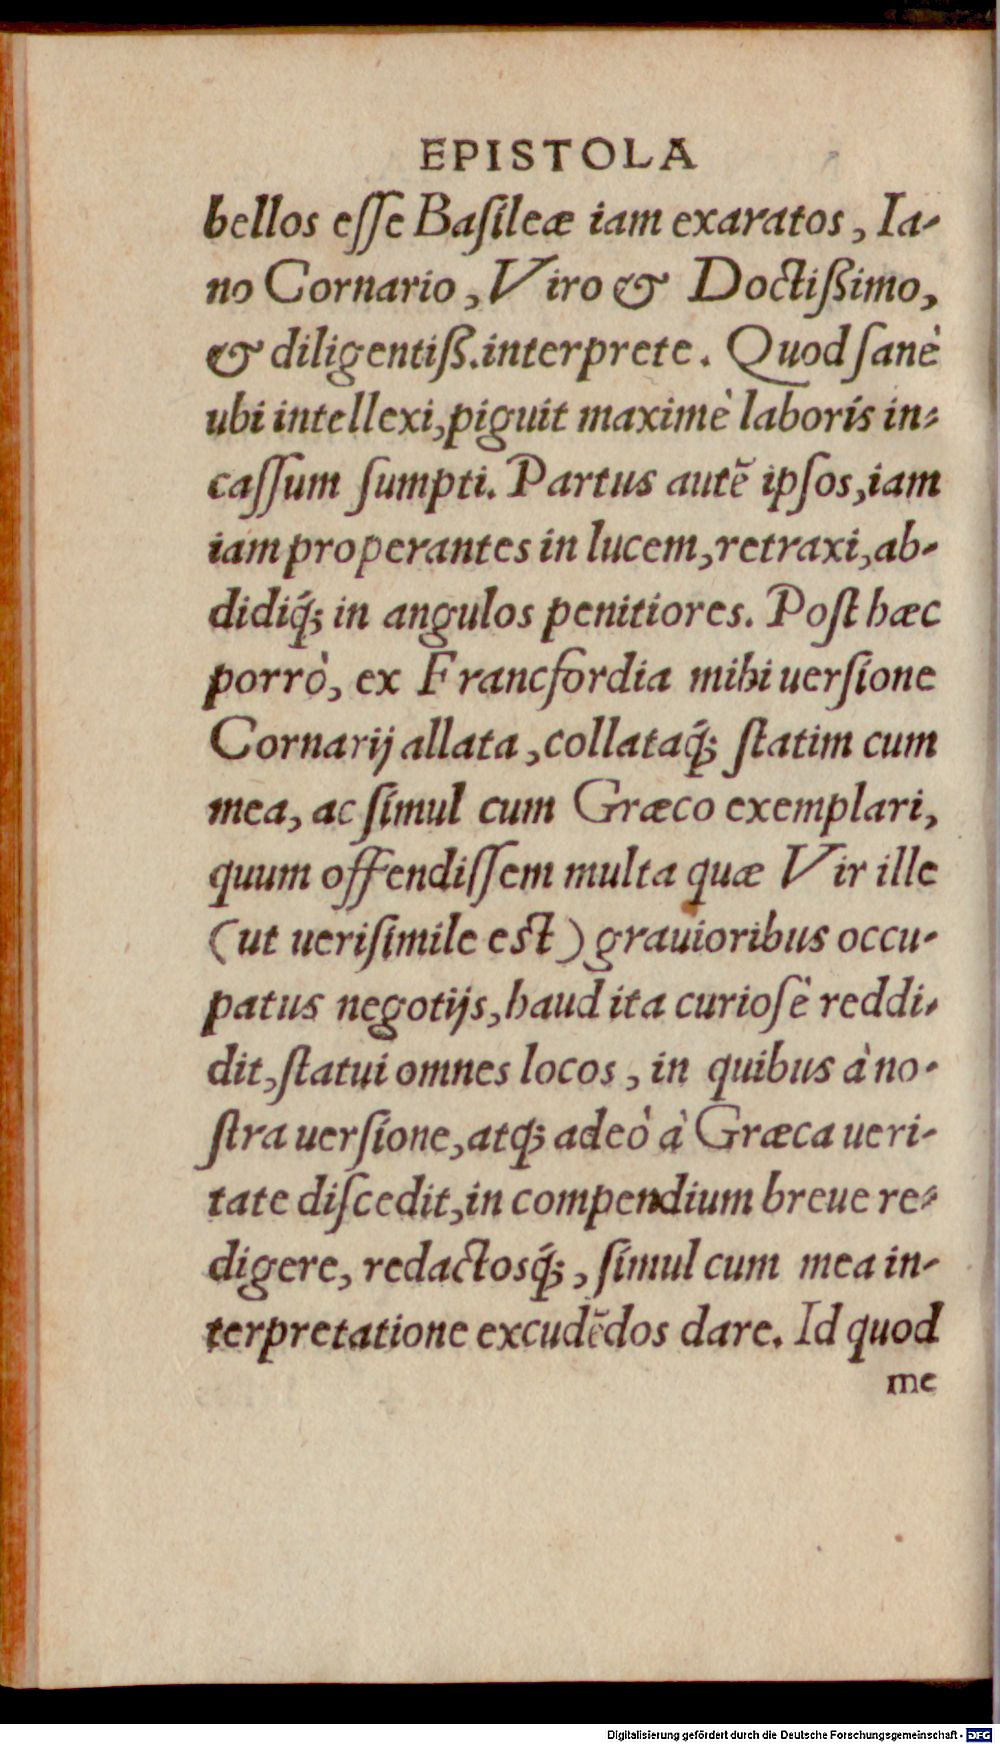 EPISTOLA
bellos eſſe Baſileæ iam exaratos, Ia-
no Cornario, Viro & Doctiſsimo,
& diligentiſs. interprete. Quod ſanè
ubi intellexi, piguit maximè laboris in-
caſſum ſumpti. Partus autẽ ipſos, iam
iam properantes in lucem, retraxi, ab-
didiq́; in angulos penitiores. Poſt hæc
porrò, ex Francfordia mihi uerſione
Cornarij allata, collataq́; ſtatim cum
mea, ac ſimul cum Græco exemplari,
quum offendiſſem multa quæ Vir ille
(ut ueriſimile eſt) grauioribus occu-
patus negotijs, haud ita curioſè reddi-
dit, ſtatui omnes locos, in quibus à no-
ſtra uerſione, atq; adeò à Græca ueri-
tate diſcedit, in compendium breue re-
digere, redactosq́;, ſimul cum mea in-
terpretatione excudẽdos dare. Id quod
me
Digitalisierung gefördert durch die Deutsche Forschungsgemeinschaft - DFG